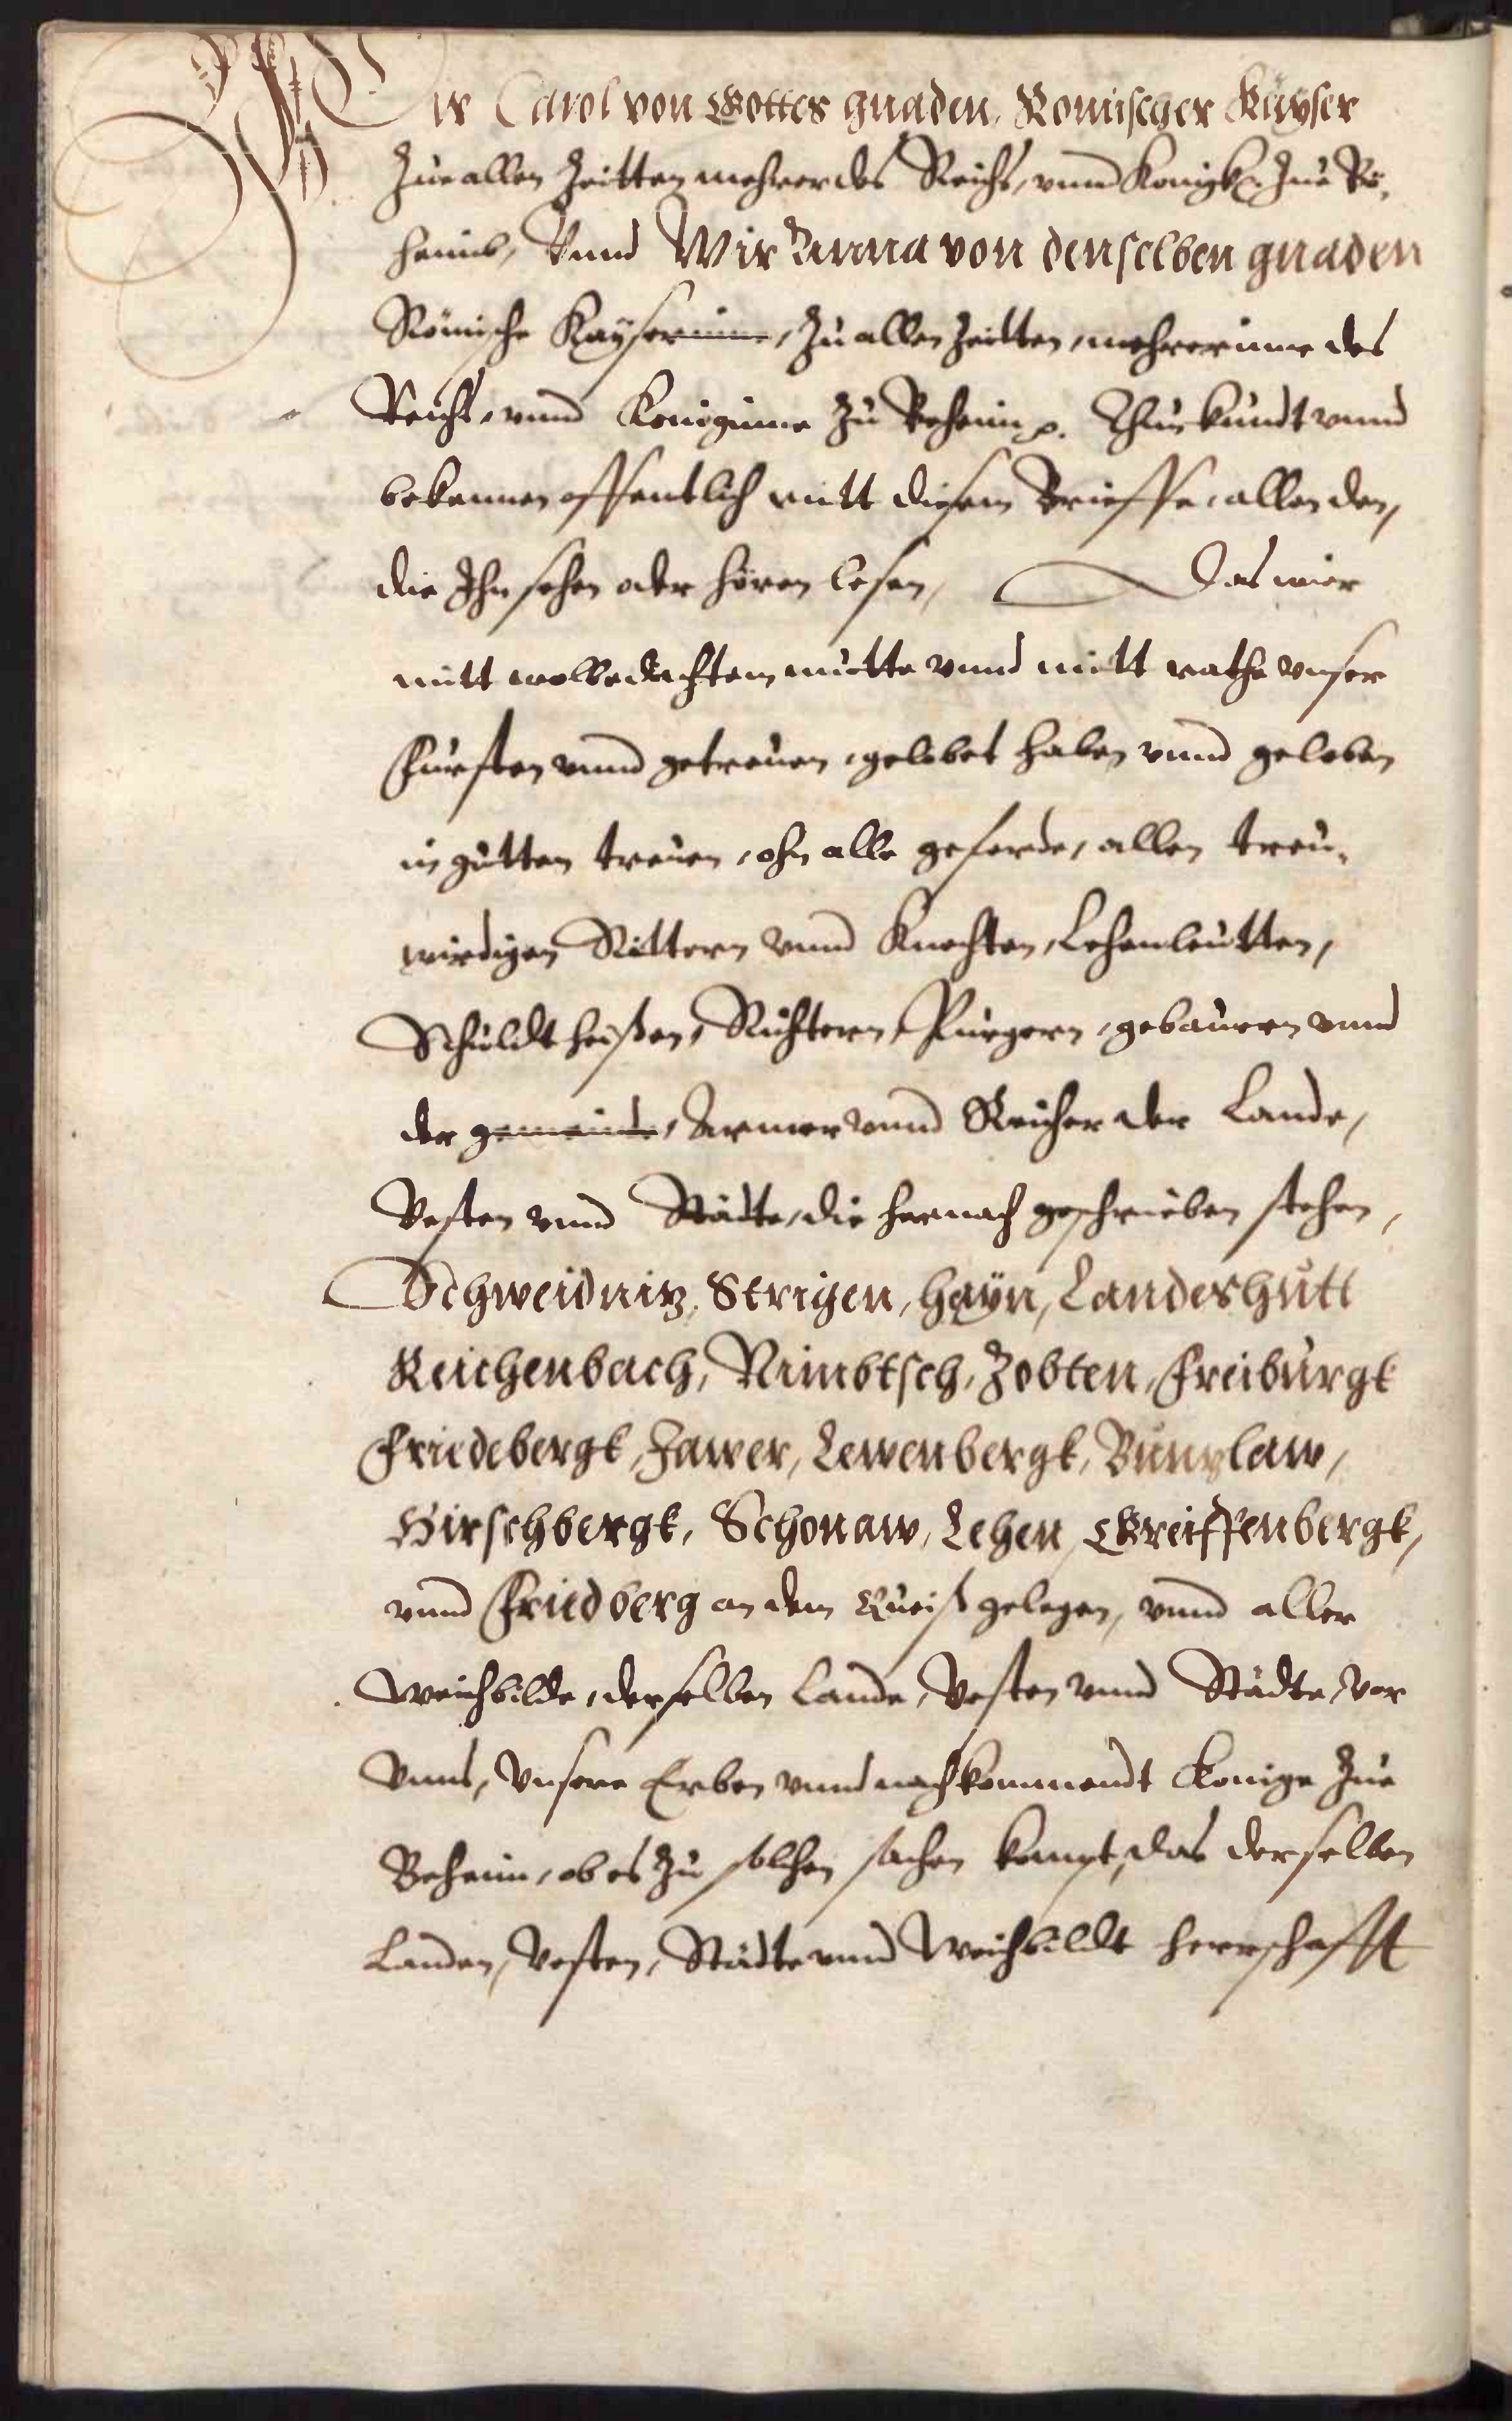 Wir Carol von Gottes gnaden, Romischer Kayser
Zue allen Zeitten mehrer des Reichs, vnnd Konigk Zue Be,
haimb, Vnnd Wir Anna von denselben gnaden
Römische Kayserinne, Zu allen Zeitten, mehrerinne des
Reichs, vnnd Koniginne Zu Behaim p. Thun kundt vnnd
bekennen offentlich mitt diesem Brieffe, allen den,
die Ihn sehen oder hören lesen, Das wier
mitt wolbedachtem mutte vnnd mitt rathe vnser
Fursten vnnd getreuen, gelobet haben vnnd geloben
in gutten treuen, ohn alle geferde, allen treu,
wirdigen Rittern vnnd Knechten, Lehenleutten,
Schuldtheißen, Richtern, Purgern, gebauern vnnd
der gemeinde, Armer vnnd Reicher der Lande,
Vesten vnnd Städte, die hernach geschrieben stehen,
Schweidnitz, Strigen, Hayn, Landeshutt
Reichenbach, Nimbtsch, Zobten, Freiburgk
Friedebergk, Jawer, Lewenbergk, Buntzlaw,
Hirschbergk, Schonaw, Lehen, Greiffenbergk,
vnnd Friedberg an dem Queiß gelegen, vnnd aller
Weichbilde, derselben Lande, Vesten vnnd Städte, vor
Vnns, Vnsere Erben vnnd nachkommendt Konige Zue
Behaim, ob es Zu solchen sachen kompt, das derselben
Landen, Vesten, Städte vnnd Weichbildt herrschafft